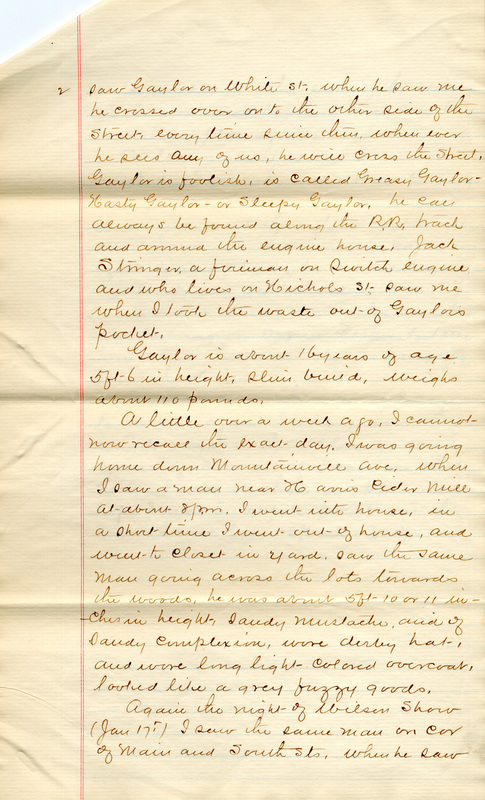 2 saw Gaylor on White St. when he saw me
he crossed over on to the other side of the
Street, every time since then, when ever
he sees any of us, he will cross the Street.
Gaylor is foolish, is called Greasy Gaylor -
Nasty Gaylor - or Sleepy Gaylor. he can
always be found along the R.R. track
and around the engine house. Jack
Stringer, a fireman on switch engine
and who lives on Nichols St. saw me
when I took the waste out of Gaylors
pocket.
Gaylor is about 16 years of age
5 ft 6 in height, slim build, weighs
about 110 pounds.
A little over a week ago, I cannot
now recall the exact day. I was going
home down Mountainvill Ave, when
I saw a man near Harris Cider Mill
at about 8 pm. I went into house, in
a short time I went out of house, and
went to closet in yard. saw the same
man going across the lots towards
the woods, he was about 5 ft 10 or 11 in-
ches in height, Sandy mustache, and of
Sandy complexion, wore derby hat,
and wore long light colored overcoat,
looked like a grey fuzzy goods.
Again the night of Wilson Show
(Jan 17th) I saw the same man on cor
of Main and South Sts. when he saw